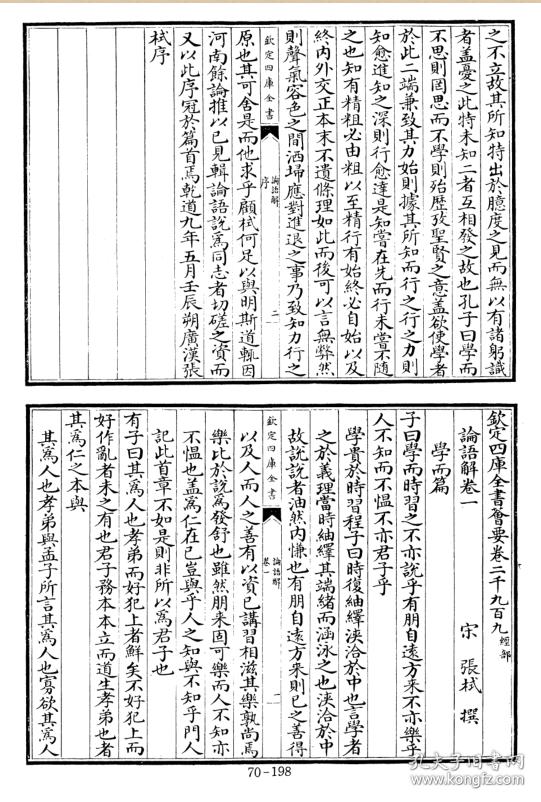 之不立故其所知特出於臆度之見而無以有諸躬識
者蓋憂之此特未知二者互相發之故也孔子曰學而
不思則罔思而不學則殆歷攷聖賢之意蓋欲使學者
於此二端兼致其力始則據其所知而行之行之力則
知愈進知之深則行愈達是知嘗在先而行未嘗不隨
之也知有精粗必由粗以至精行有始終必自始以及
終內外交正本末不遺條理如此而後可以言無弊然
則聲氣容色之間洒埽應對進退之事乃致知力行之
欽定四庫全書
論語解
序
二
原也其可舍是而他求乎顧栻何足以與明斯道輒因
河南餘論推以已見輯論語說爲同志者切磋之資而
又以此序冠於篇首焉乾道九年五月壬辰朔廣漢張
栻序
欽定四庫全書薈要卷二千九百九 經部
論語解卷一
宋 張栻 撰
學而篇
子曰學而時習之不亦說乎有朋自遠方来不亦樂乎
人不知而不慍不亦君子乎
學貴於時習程子曰時復紬繹浹洽於中也言學者
之於義理當時紬繹其端緒而涵泳之也浹洽於中
故說說者油然内慊也有朋自遠方来則已之善得
欽定四庫全書
論語解
卷一
一
以及人而人之善有以資已講習相滋其樂孰尚焉
樂比於說爲發舒也雖然朋来固可樂而人不知亦
不慍也蓋爲仁在已豈與乎人之知與不知乎門人
記此首章不如是則非所以爲君子也
有子曰其爲人也孝弟而好犯上者鮮矣不好犯上而
好作亂者未之有也君子務本本立而道生孝弟也者
其爲仁之本與
其爲人也孝弟與孟子所言其爲人也寡欲其爲人
70-198
孔夫子旧书网
www.kongfz.com